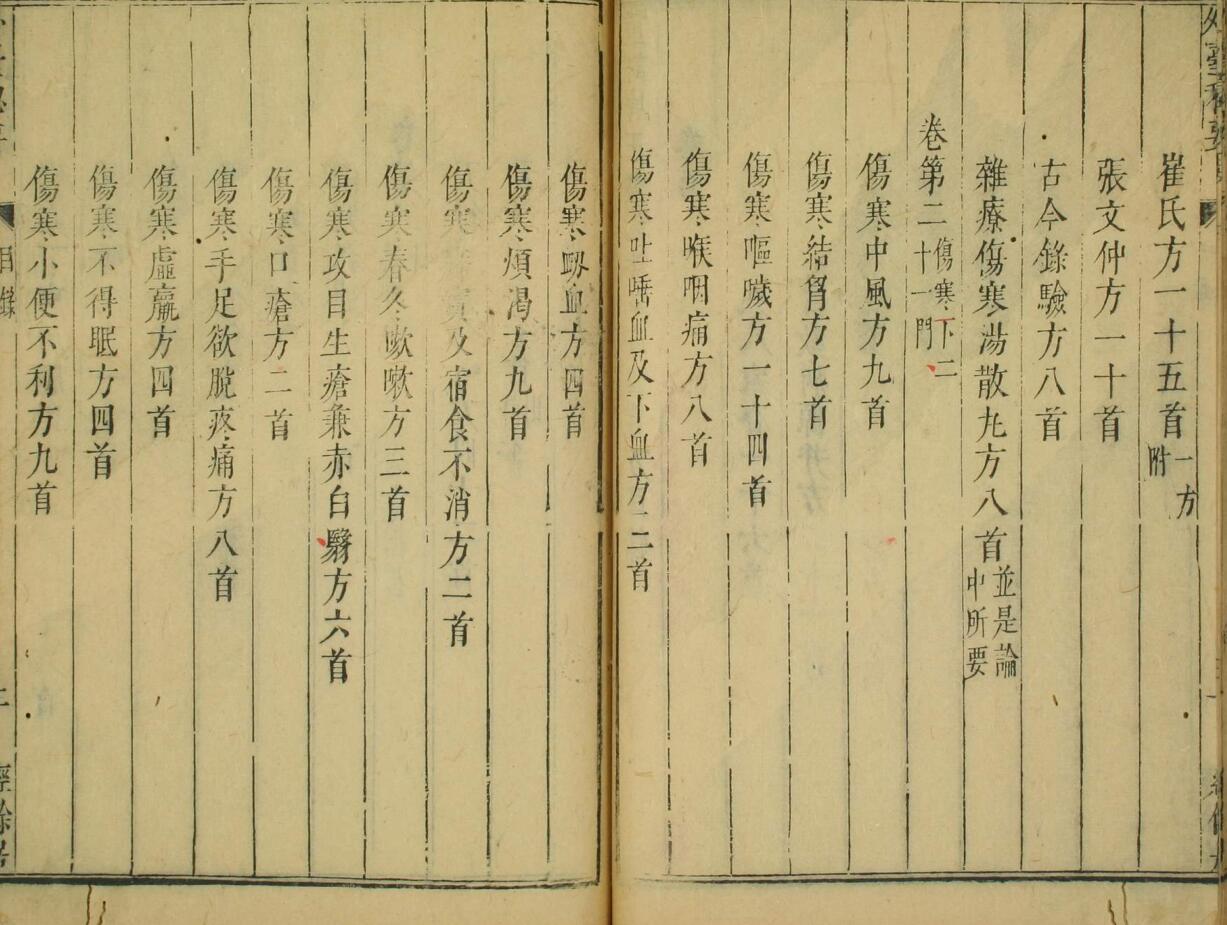 崔氏方一十五首一方附
張文仲方一十首
古今錄驗方八首
雜療傷寒湯散丸方八首並是論中所要
卷第二傷寒下二十一門
傷寒中風方九首
傷寒結胷方七首
傷寒嘔噦方一十四首
傷寒喉咽痛方八首
傷寒吐唾血及下血方二首
傷寒衂血方四首
傷寒煩渴方九首
傷寒及宿食不消方二首
傷寒春冬嗽方三首
傷寒攻目生瘡兼赤白翳方六首
傷寒口瘡方二首
傷寒手足欲脫疼痛方八首
傷寒虛羸方四首
傷寒不得眠方四首
傷寒小便不利方九首
目錄
經餘居